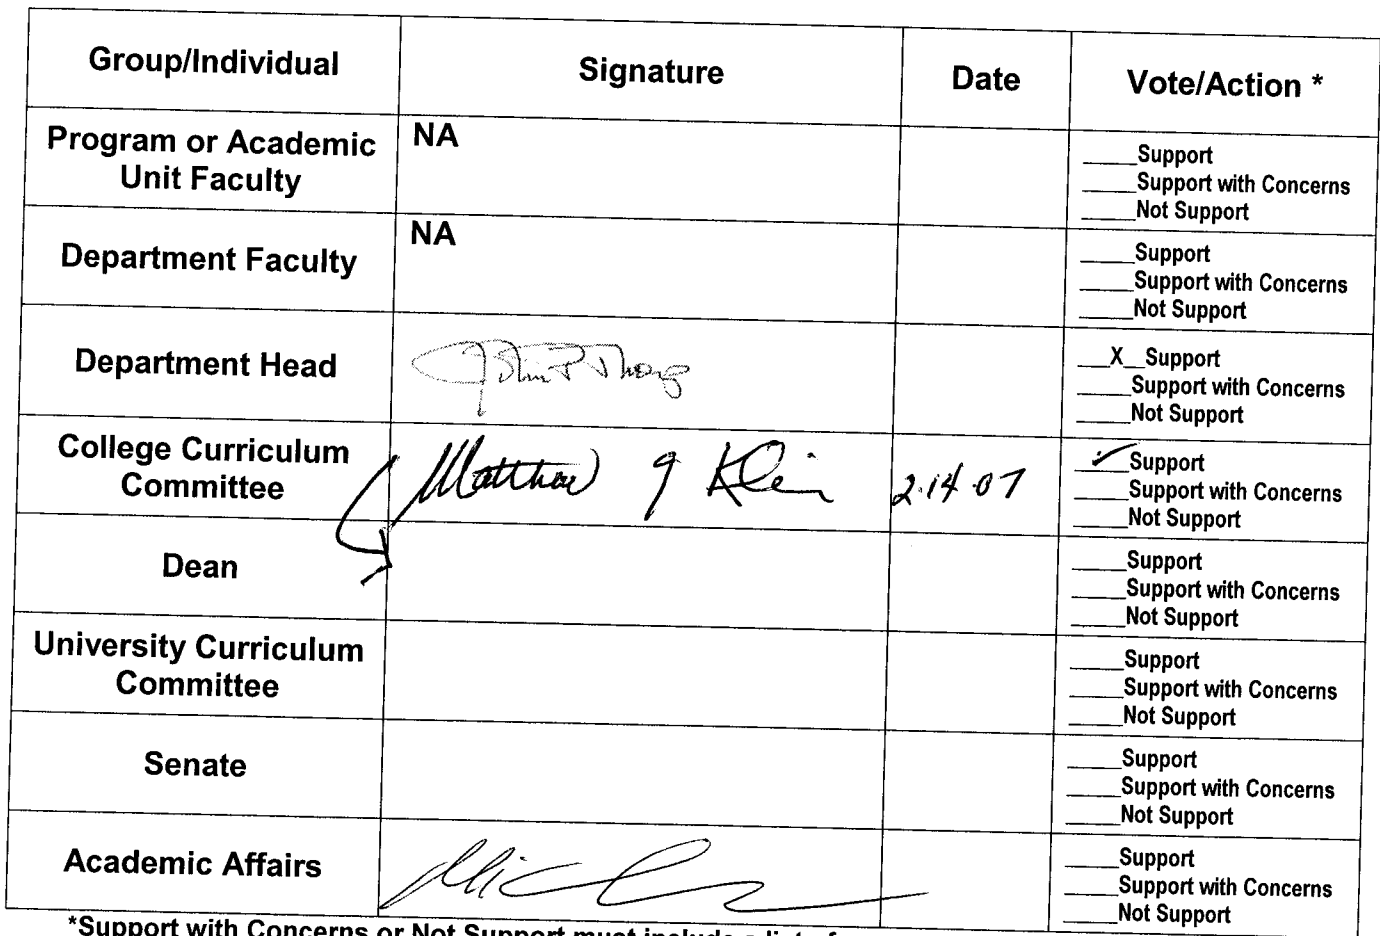 Group/Individual Signature Date Vote/Action *
Program or Academic Unit Faculty NA
_____Support
_____Support with Concerns
_____Not Support
Department Faculty NA
_____Support
_____Support with Concerns
_____Not Support
Department Head John P Thomp
__X__Support
_____Support with Concerns
_____Not Support
College Curriculum Committee Matthew J Klein 2.14.07
__✓__Support
_____Support with Concerns
_____Not Support
Dean
_____Support
_____Support with Concerns
_____Not Support
University Curriculum Committee
_____Support
_____Support with Concerns
_____Not Support
Senate
_____Support
_____Support with Concerns
_____Not Support
Academic Affairs
_____Support
_____Support with Concerns
_____Not Support
*Support with Concerns or Not Support must include a list of